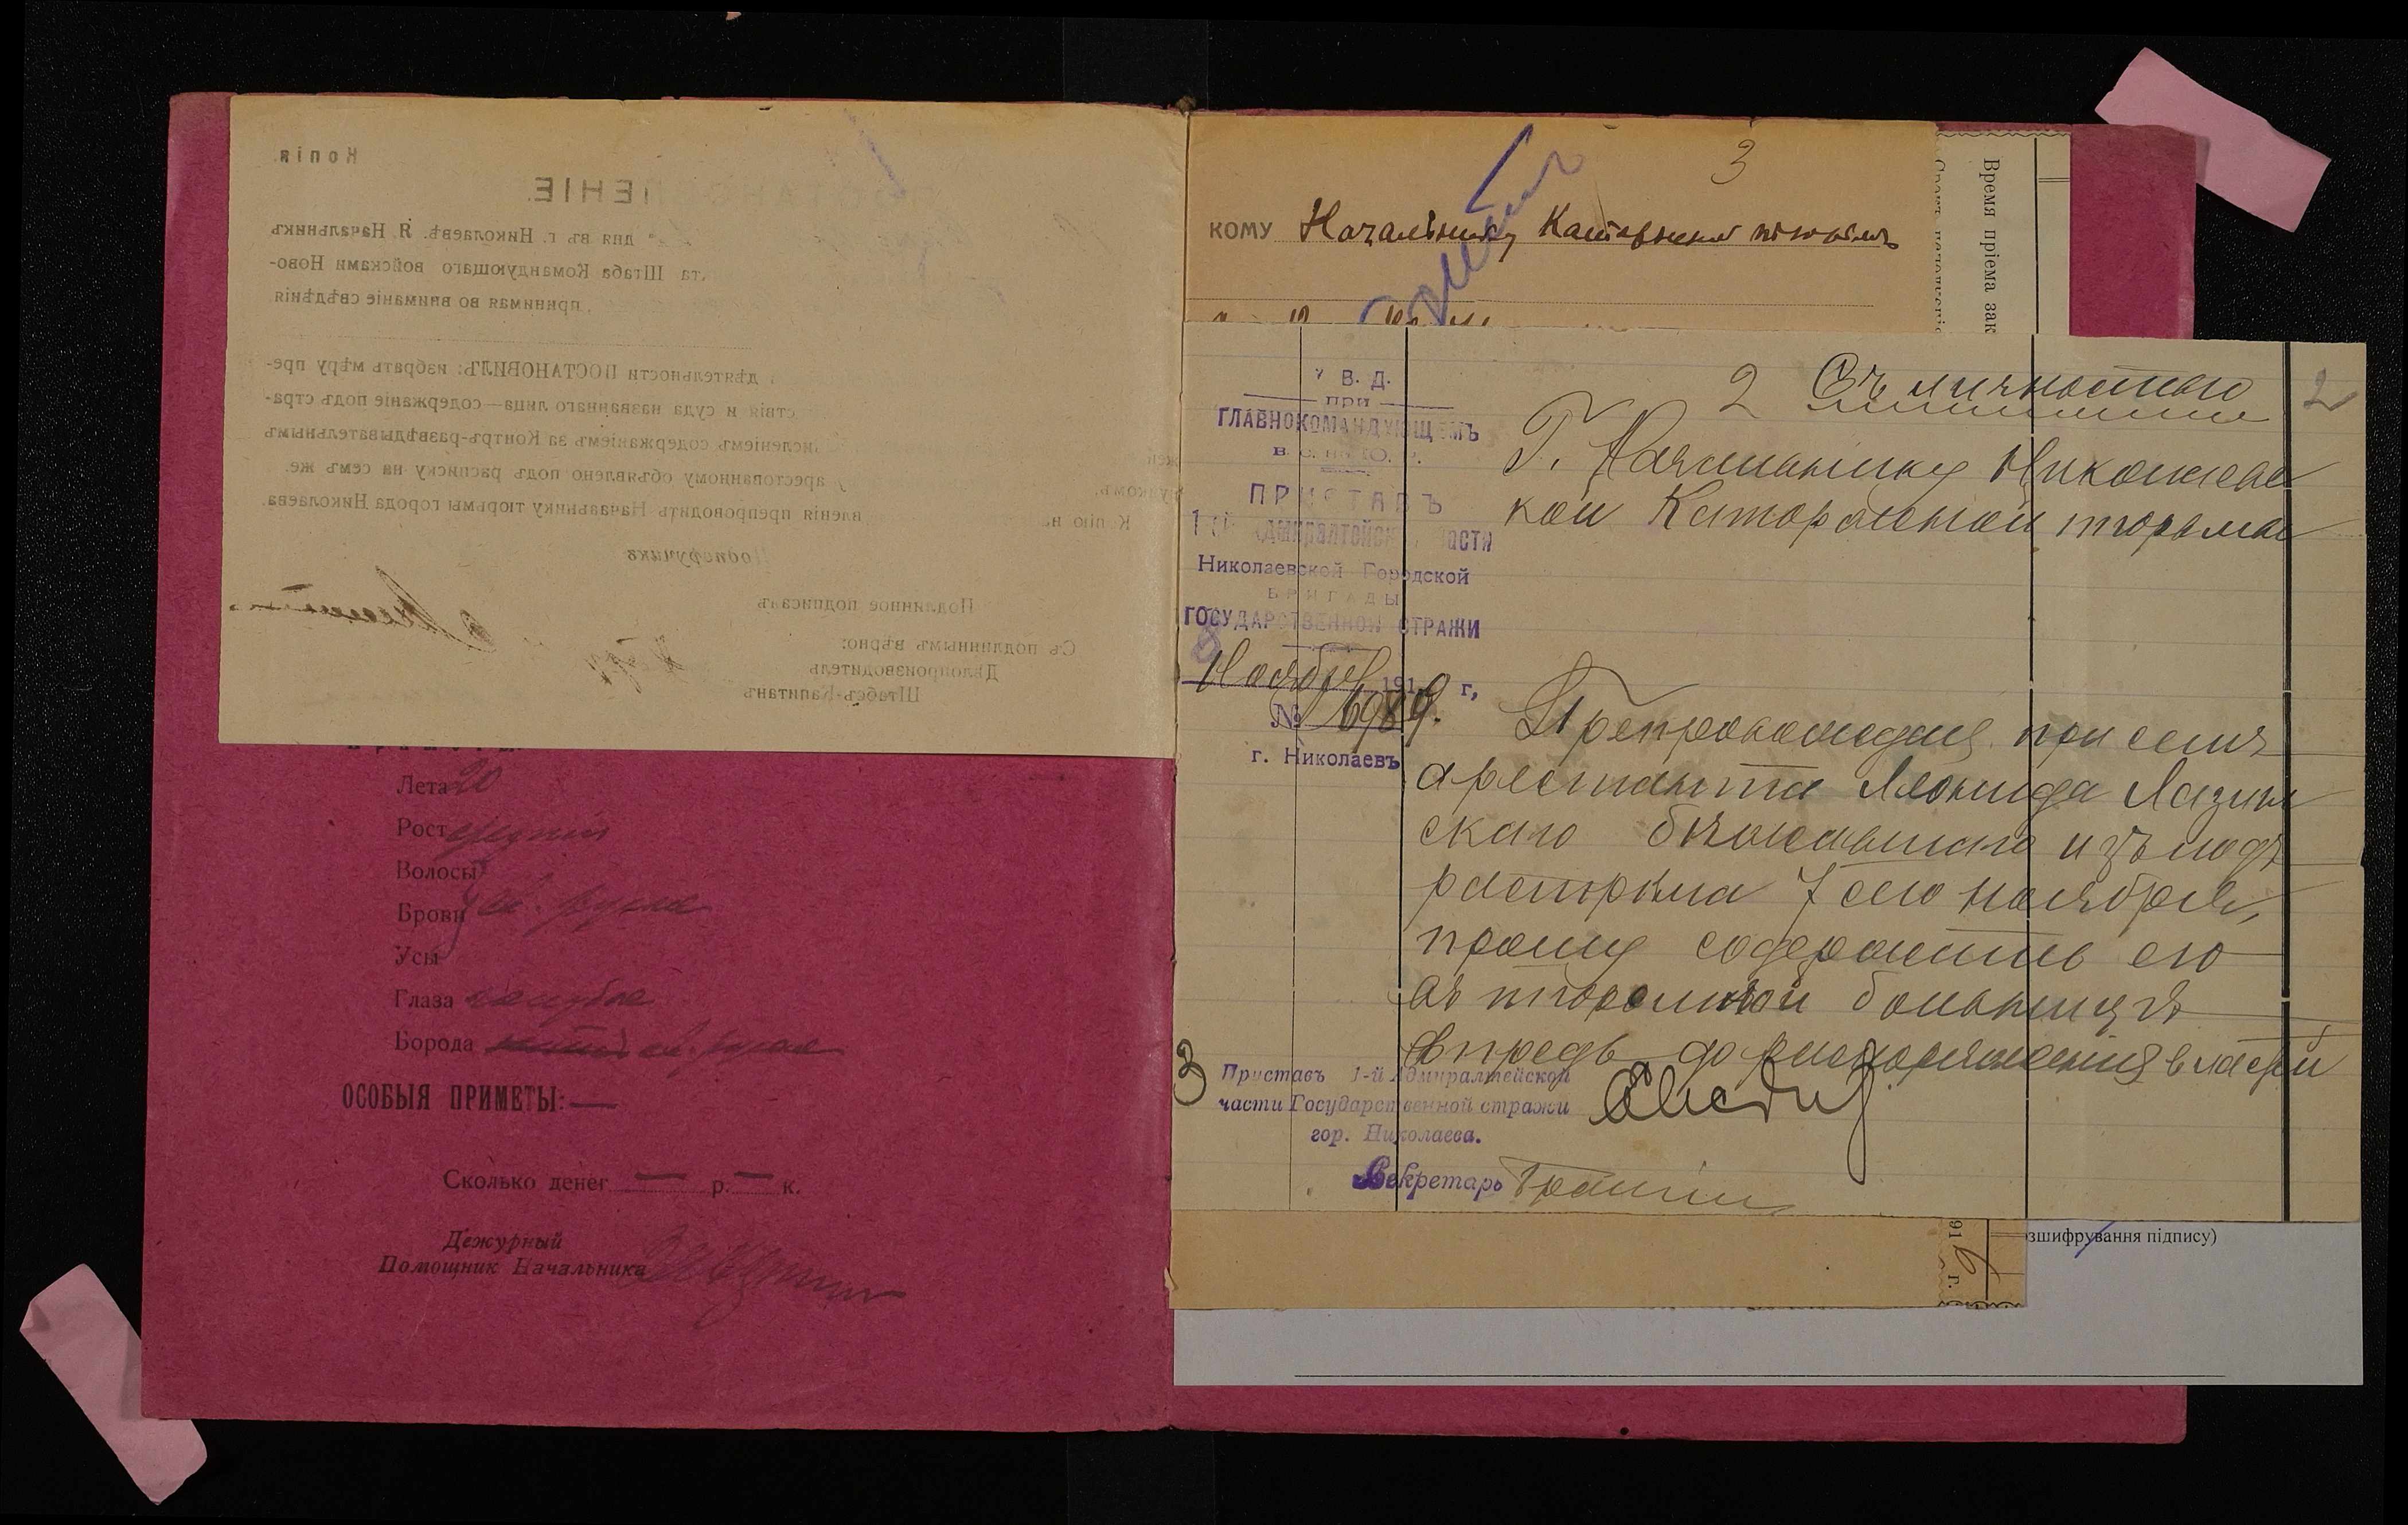 Копія.
дня въ г. Николаевѣ. Я, Начальникъ
Штаба Командующаго войсками Ново-
принимая во вниманіе свѣдѣнія
дѣятельности ПОСТАНОВИЛЪ: избрать мѣру пре-
ствія и суда названнаго лица—содержаніе подъ стра-
численіемъ содержаніемъ за Контръ-развѣдывательнымъ
арестованному объявлено подъ расписку на семъ же.
Копію
вленія препроводить Начальнику тюрьмы города Николаева.
Подпоручикъ
Подлинное подписалъ
Съ подлиннымъ вѣрно:
Дѣлопроизводитель
Штабсъ-Капитанъ
Лета 20
Рост средній
Волосы
Брови св. русые
Усы
Глаза голубые
Борода св. русая
ОСОБЫЯ ПРИМЕТЫ: —
Сколько денег — р. — к.
Дежурный
Помощник Начальника
3
КОМУ Начальнику Каторжной тюрьмы
Время пріема зак
2 Съ личностью 2
У. В. Д.
при
ГЛАВНОКОМАНДУЮЩЕМЪ
В. С. на Ю. Р.
ПРИСТАВЪ
1-й Адмиралтейской части
Николаевской Городской
БРИГАДЫ
ГОСУДАРСТВЕННОЙ СТРАЖИ
8
Ноября 1919 г,
№ 6989.
г. Николаевъ
Г. Начальнику Николаевс
кой Каторжной тюрьмы
Препровождая при семъ
арестанта Леонида Лазин
скаго бѣжавшаго изъ подъ
растрѣла 7 сего ноября,
прошу содержать его
въ тюремной больницѣ
впредь до распоряженія властей
3
Приставъ 1-й Адмиралтейской
части Государственной стражи
гор. Николаева.
Секретарь
916 г.
зшифрування підпису)